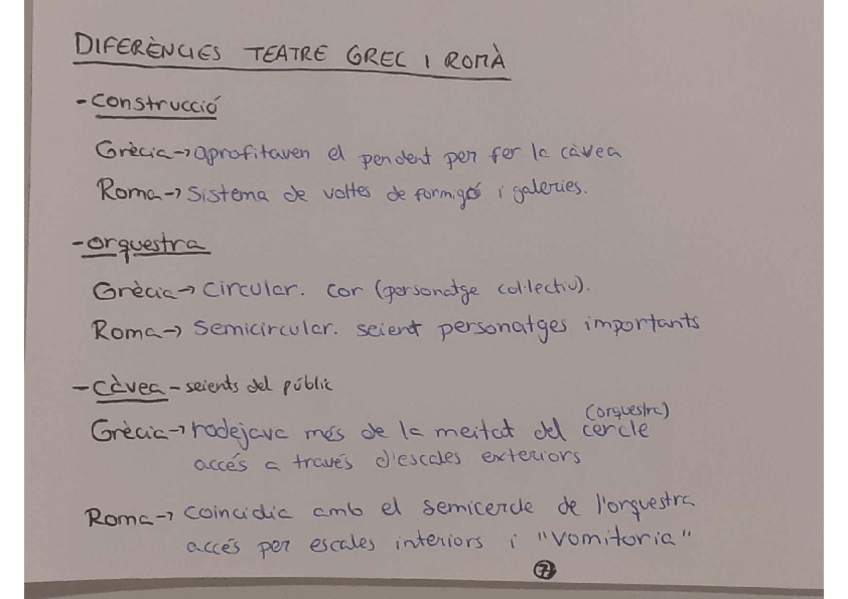 DIFERÈNCIES TEATRE GREC I ROMÀ
- Construcció
Grècia → aprofitaven el pendent per fer la càvea
Roma → Sistema de voltes de formigó i galeries.
- orquestra
Grècia → Circular. cor (personatge col·lectiu).
Roma → Semicircular. seient personatges importants
- Càvea - seients del públic
(orquestra)
Grècia → rodejava més de la meitat del cercle
accés a través d'escales exteriors
Roma → Coincidia amb el semicercle de l'orquestra
accés per escales interiors i "vomitoria"
7